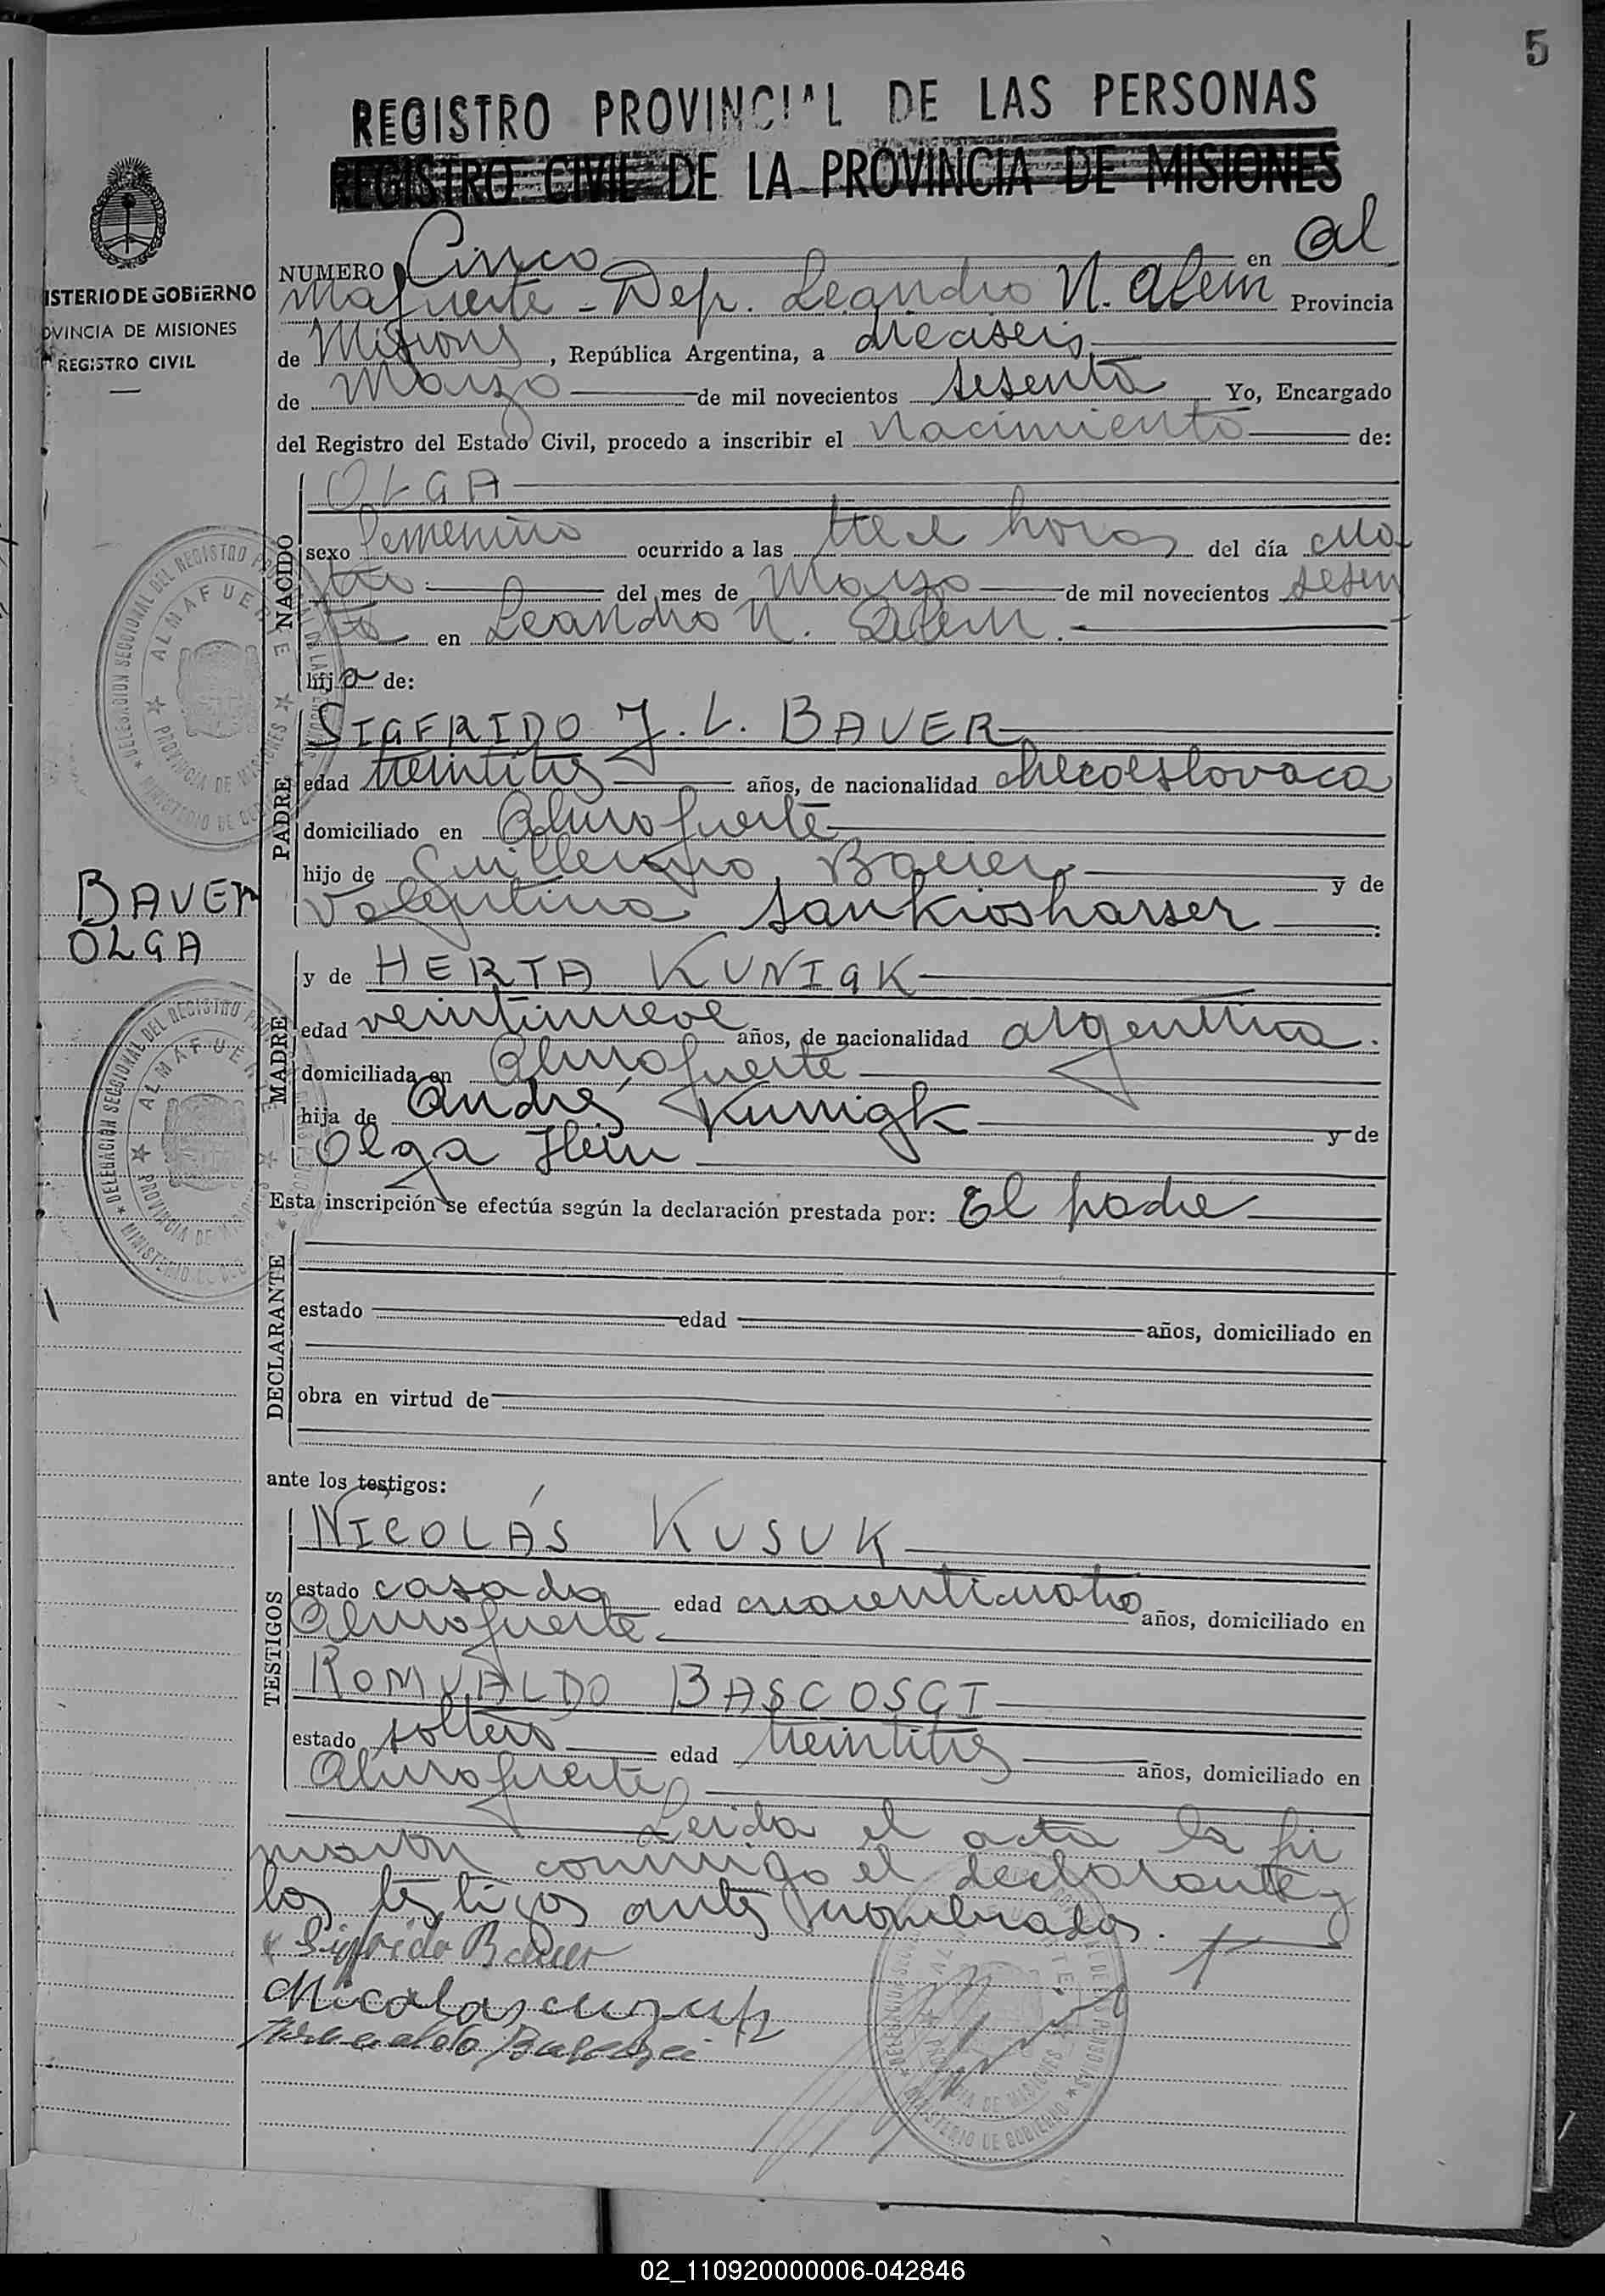 5
REGISTRO PROVINCIAL DE LAS PERSONAS
REGISTRO CIVIL DE LA PROVINCIA DE MISIONES
ISTERIO DE GOBIERNO
OVINCIA DE MISIONES
REGISTRO CIVIL
NUMERO Cinco en Al
mafuerte - Dep. Leandro N. Alem Provincia
de Misiones, República Argentina, a dieciseis
de Marzo de mil novecientos sesenta Yo, Encargado
del Registro del Estado Civil, procedo a inscribir el Nacimiento de:
NACIDO
OLGA
sexo femenino ocurrido a las trece horas del día cua-
tro del mes de Marzo de mil novecientos sesen
ta en Leandro N. Alem.
hija de:
PADRE
SIGFRIDO J. L. BAUER
edad treintitrés años, de nacionalidad checoeslovaca
domiciliado en Almafuerte
hijo de Guillermo Bauer y de
Valentina
BAUER
OLGA
MADRE
y de HERTA KUNIGK
edad veintinueve años, de nacionalidad argentina.
domiciliada en Almafuerte
hija de Andrés Kunigk y de
Olga Hein
Esta inscripción se efectúa según la declaración prestada por: El padre
DECLARANTE
estado edad años, domiciliado en
obra en virtud de
ante los testigos:
TESTIGOS
NICOLÁS KUSUK
estado casado edad cuarenticuatro años, domiciliado en
Almafuerte
ROMUALDO BASCOSCI
estado soltero edad treintitrés años, domiciliado en
Almafuerte
Leida el acta la fir
maron conmigo el declarante y
los testigos antes nombrados.
Sigfrido Bauer
DELEGACION SECCIONAL DEL REGISTRO PROVINCIAL DE LAS PERSONAS
ALMAFUERTE
PROVINCIA DE MISIONES
MINISTERIO DE GOBIERNO
02_110920000006-042846